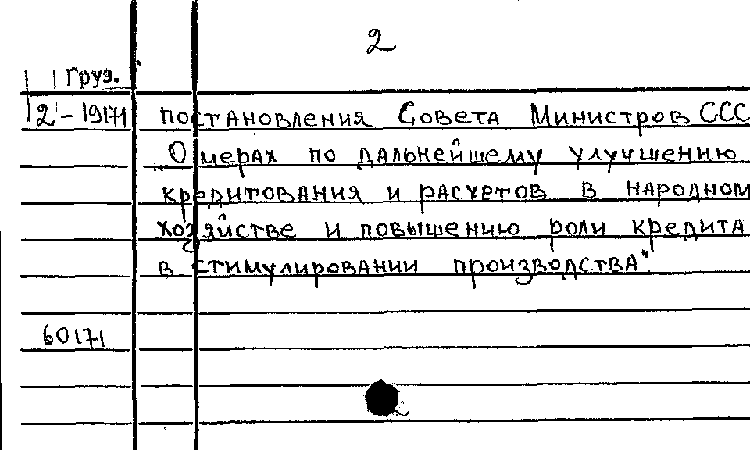 2
Груз.
2-19171 постановления Совета Министров ССС
О мерах по дальнейшему улучшению
кредитования и расчетов в народном
хозяйстве и повышению роли кредита
в стимулировании производства".
60171